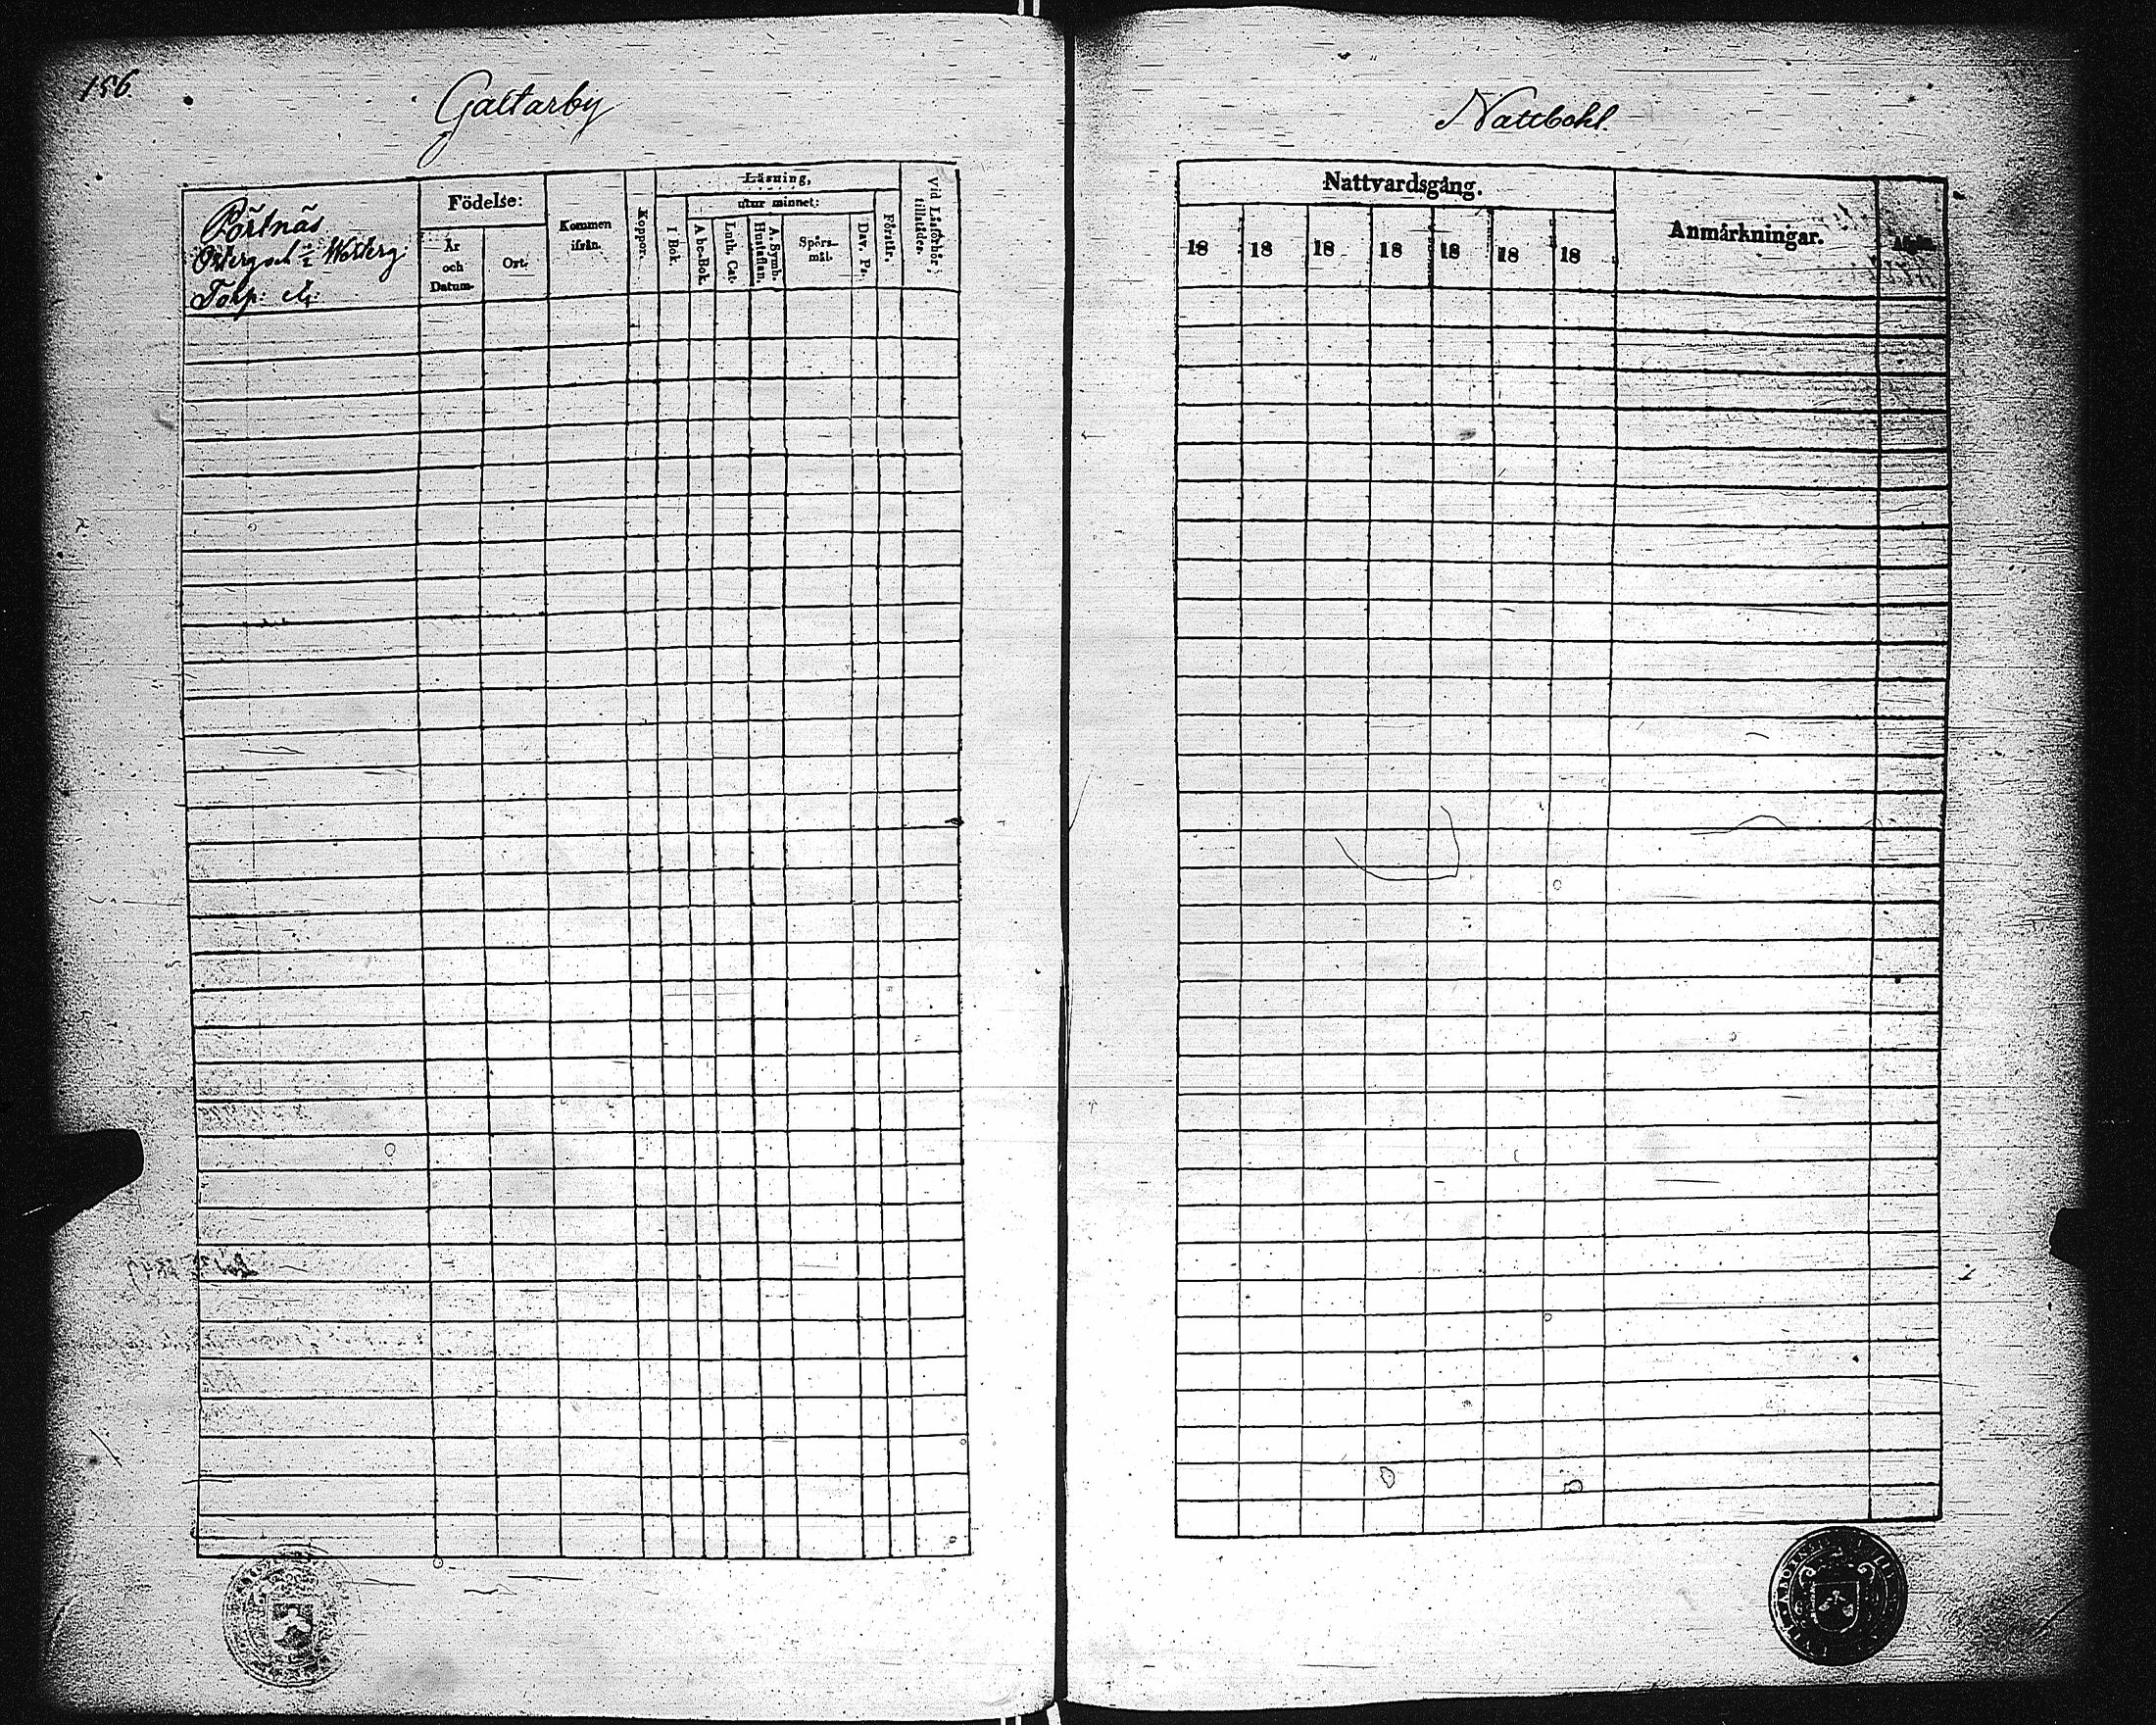 156
Galtarby
Nattbohl.
Pörtnäs
Österg och ½ Westerg
Torp: etc:
Födelse:
År
och
Datum.
Ort.
Kommen
ifrån.
Koppor.
Läsning,
utur minnet:
I Bok.
Abc-Bok.
Luth. Cat.
A. Symb.
Hustaflan.
Spörs-
mål.
Dav. Ps.
Förstår.
Vid Läsförhör
tillstädes.
Nattvardsgång.
18 18 18 18 18 18 18
Anmärkningar.